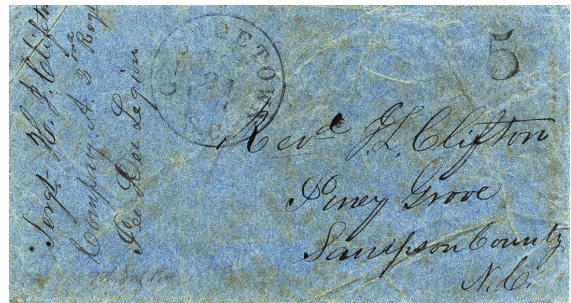 Sergt H. J. Clifton
Company A. 3rd Regt
Pee Dee Legion
GEORGETOWN
S.C.
5
Revd J. L. Clifton
Piney Grove
Sampson County
N.C.